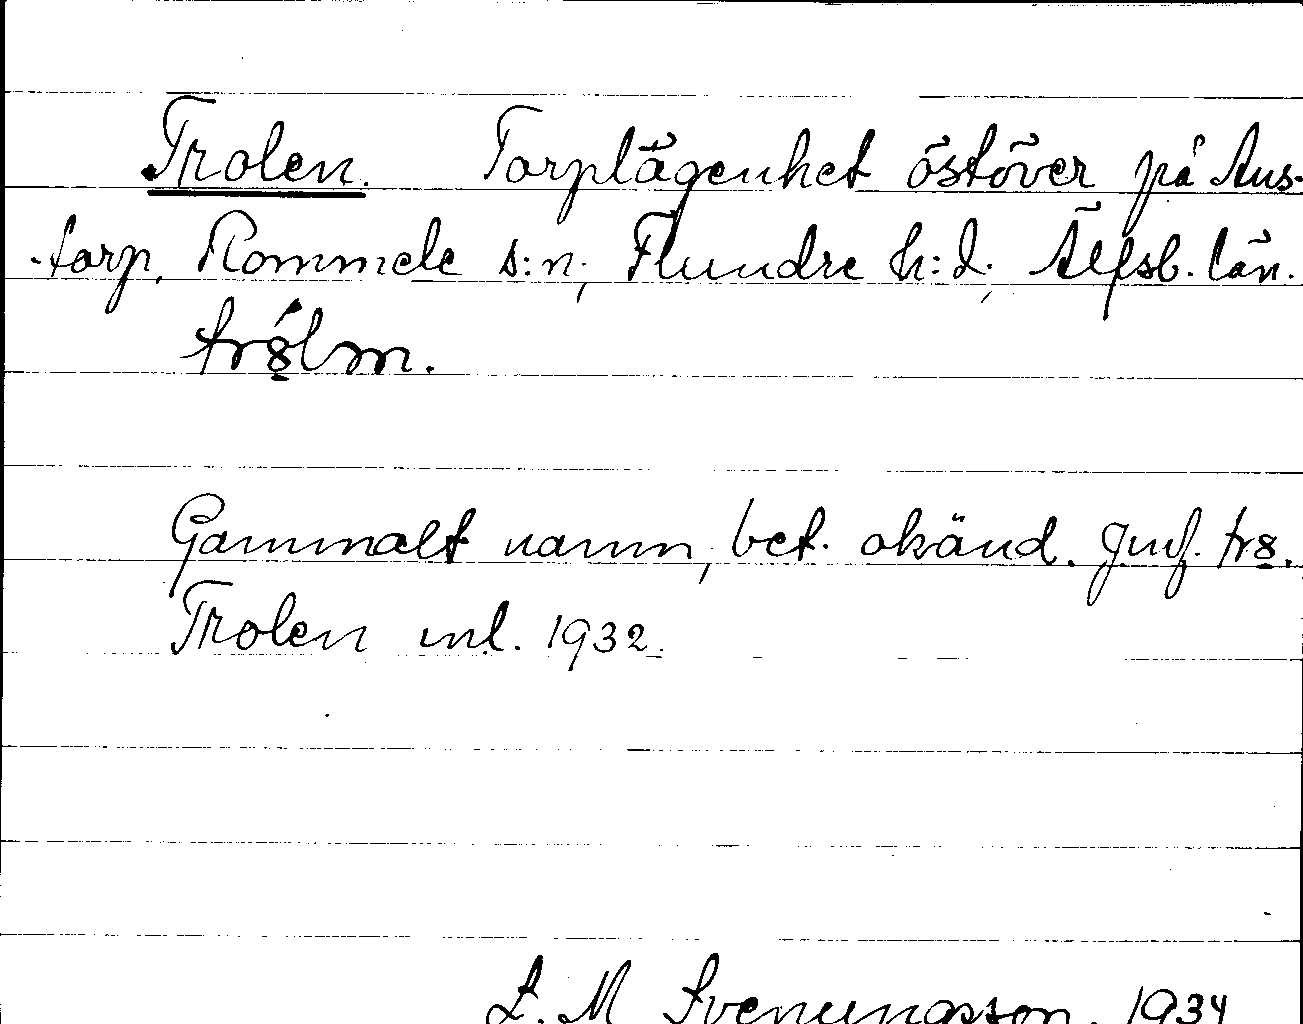 Trolen. Torplägenhet östöver på Aus-
torp, Rommele s:n, Flundre h:d, Älfsb. län.
Gammalt namn, bet. okänd. Jmf. tr8.
Trolen inl. 1932.
L. M Svenungsson. 1934